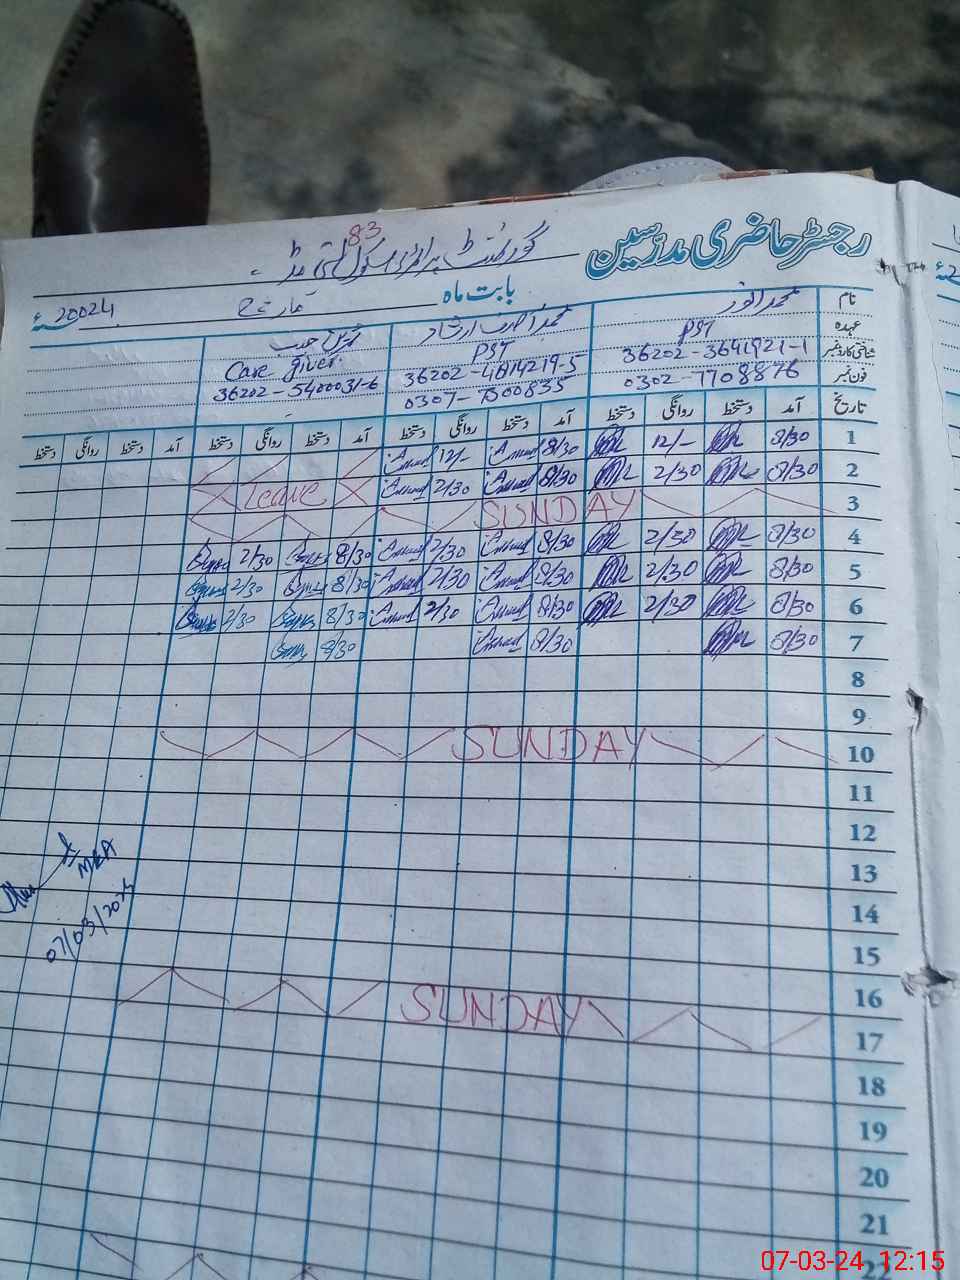 رجسٹر حاضری مدرسین
گورنمنٹ پرائمری سکول
83
بابت ماہ مارچ 20024ء
نام محمد انور
عہدہ PST PST Care giver
شناختی کارڈ نمبر 36202-3641921-1 36202-4814219-5 36202-5400031-6
فون نمبر 0302-7708876 0307-7300835
تاریخ آمد دستخط روانگی دستخط آمد دستخط روانگی دستخط آمد دستخط روانگی دستخط آمد دستخط روانگی دستخط
1 8/30 12/- 8/30 12/-
2 8/30 2/30 8/30 2/30 Leave
3 SUNDAY
4 8/30 2/30 8/30 2/30 8/30 2/30
5 8/30 2/30 8/30 2/30 8/30 2/30
6 8/30 2/30 8/30 2/30 8/30 2/30
7 8/30 8/30 8/30
8
9
10 SUNDAY
11
12
13
14
15
16
17 SUNDAY
18
19
20
21
22
MEA
07/03/2024
07-03-24 12:15